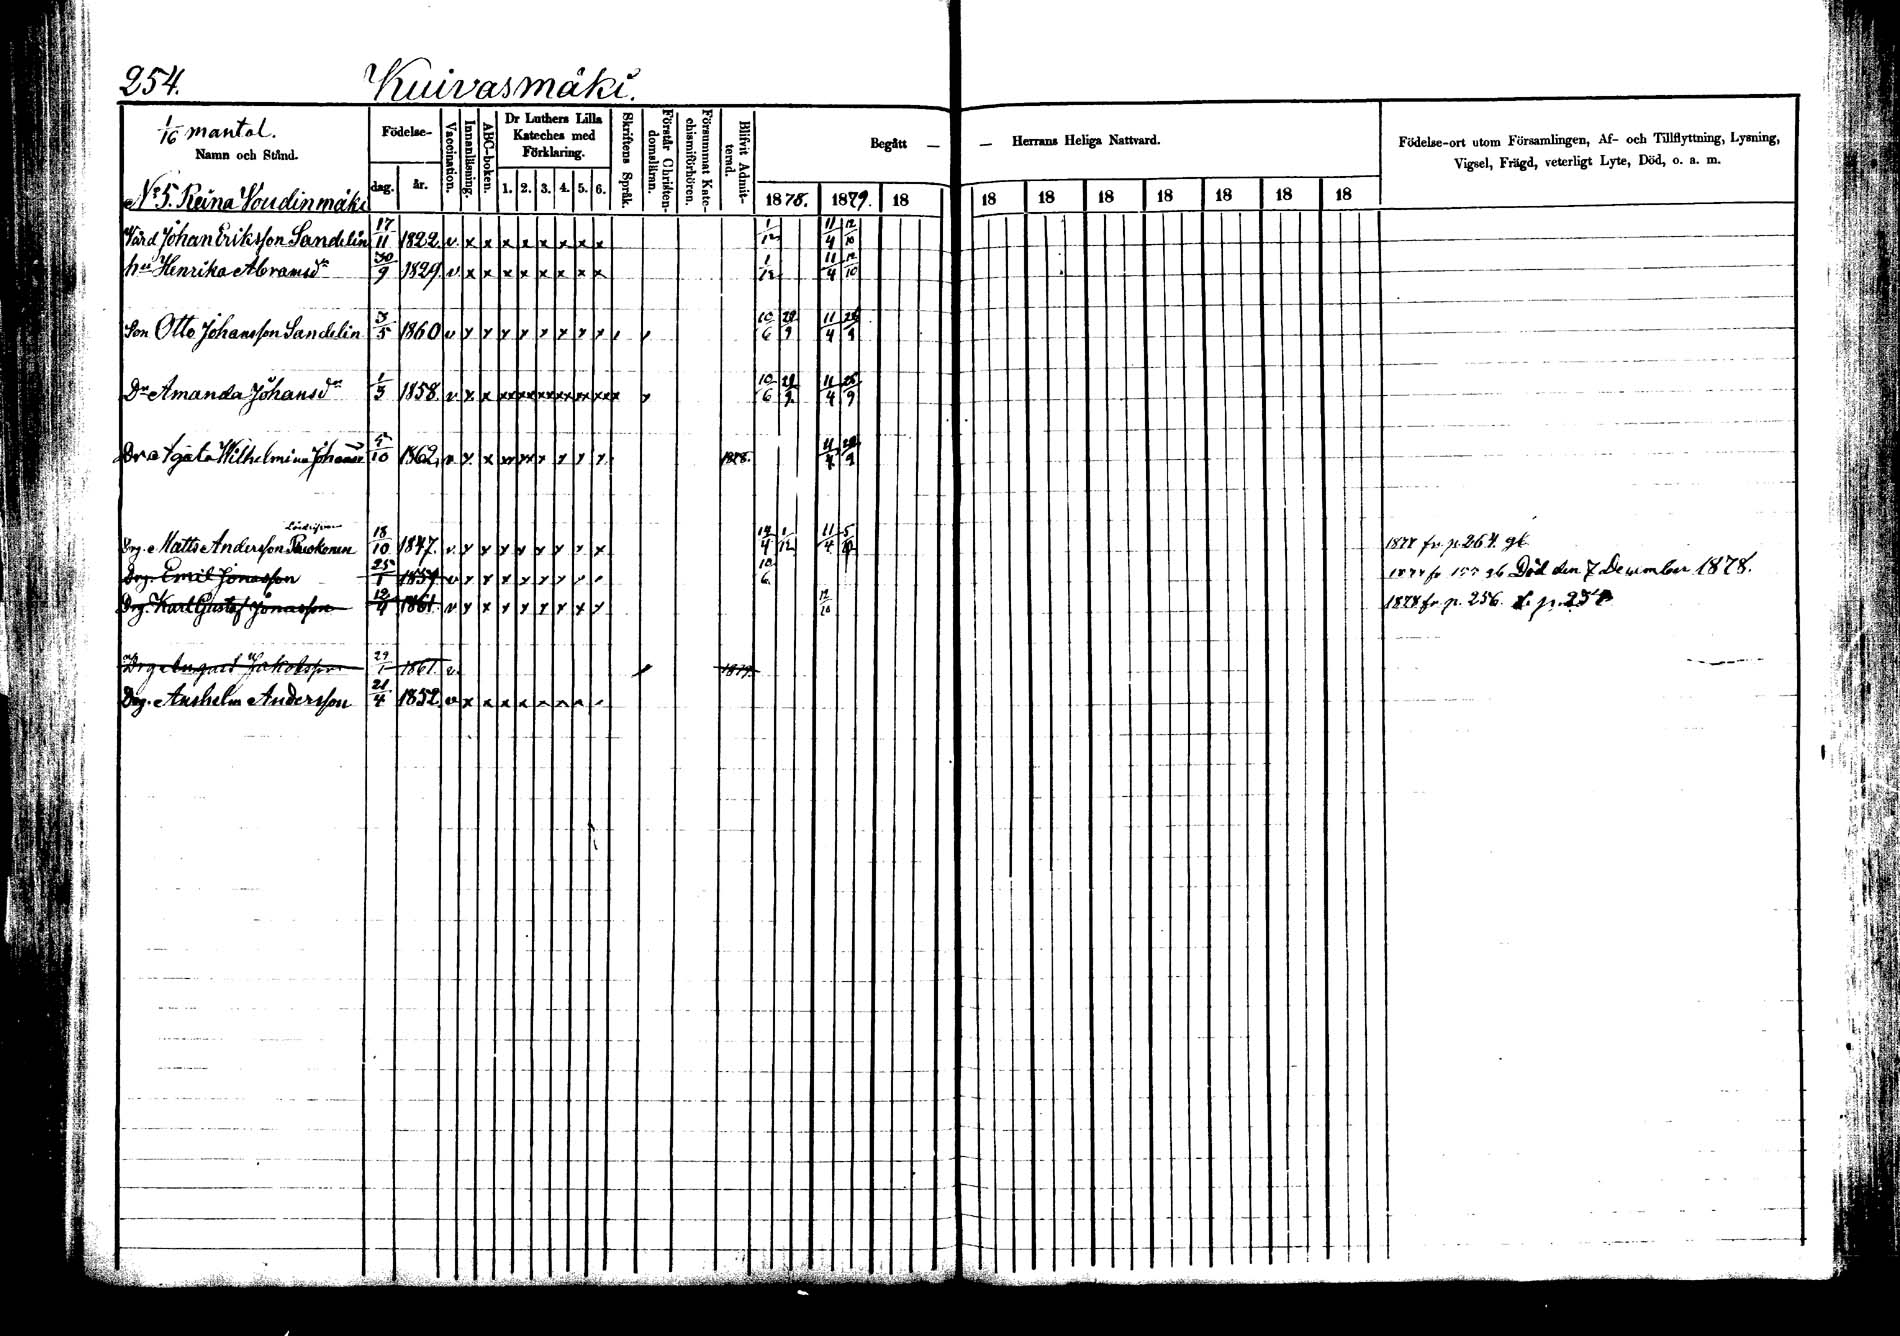 254. Kuivasmäki.
1/16 mantal.
Namn och Stånd.
Födelse-
dag. år.
Vaccination.
Innanläsning.
ABC-boken.
Dr Luthers Lilla Kateches med Förklaring.
1. 2. 3. 4. 5. 6.
Skriftens Språk.
Förstår Christendomslärnn.
Försummat Katechismiförhören.
Blifvit Admitterad.
Begått — — Herrans Heliga Nattvard.
1878. 1879. 18 18 18 18 18 18 18 18
Födelse-ort utom Församlingen, Af- och Tillflyttning, Lysning,
Vigsel, Frägd, veterligt Lyte, Död, o. a. m.
No 5. Reina Voudinmäki
Värd Johan Eriksson Sandelin 17/11 1822. v x x x x x x x x 1/12 11/4 12/10
hu Henrika Abramsdr 30/9 1829. v x x x x x x x x 1/12 11/4 12/10
Son Otto Johansson Sandelin 3/5 1860 v x x x x x x x x 10/6 29/9 11/4 28/9
Dr Amanda Johansdr 1/5 1858. v x x xx xx xx xx xx xx x 10/6 29/9 11/4 28/9
Dr Agata Wilhelmina Johansdr 5/10 1862. v x x xx xx x x x x 1878. 11/4 28/9
Drg. Matts Andersson Ruokonen 18/10 1847. v x x x x x x x x 14/4 1/12 11/4 5/10 1878 fr. p. 264. gk
Drg. Emil Jonasson 25/1 1859 v x x x x x x 10/6 Död den 7 December 1878.
Drg. Karl Gustaf Jonasson 12/4 1861. v x x x x x x x x 12/10 1878 fr. p. 256.
Drg August Jakobsson 29/1 1861. v 1879.
Drg. Anshelm Andersson 21/4 1852. v x x x x x x x